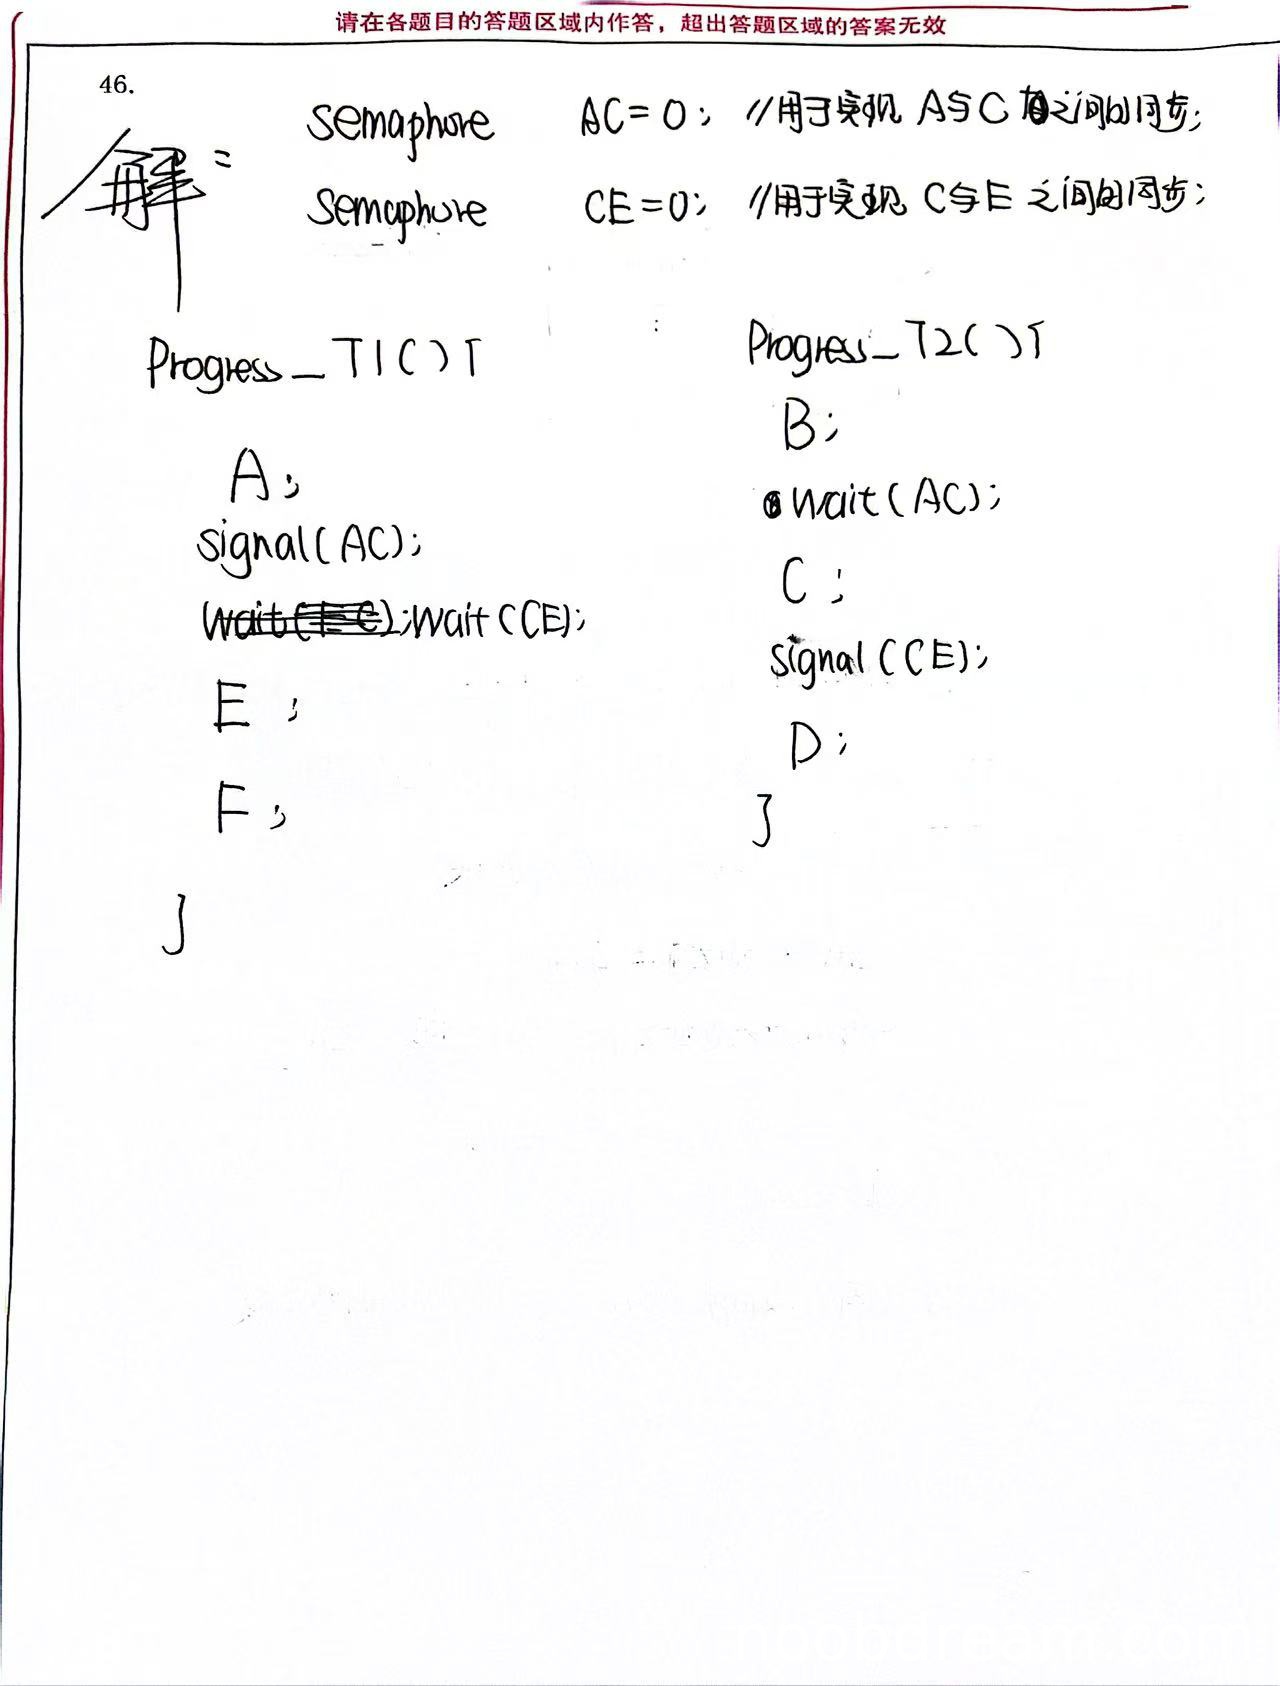 请在各题目的答题区域内作答，超出答题区域的答案无效
46.
解:
semaphore AC=0; //用于实现 A与C之间的同步;
semaphore CE=0; //用于实现 C与E之间的同步;
Progress_T1(){
A;
signal(AC);
wait(CE);
E;
F;
}
Progress_T2(){
B;
wait(AC);
C;
signal(CE);
D;
}